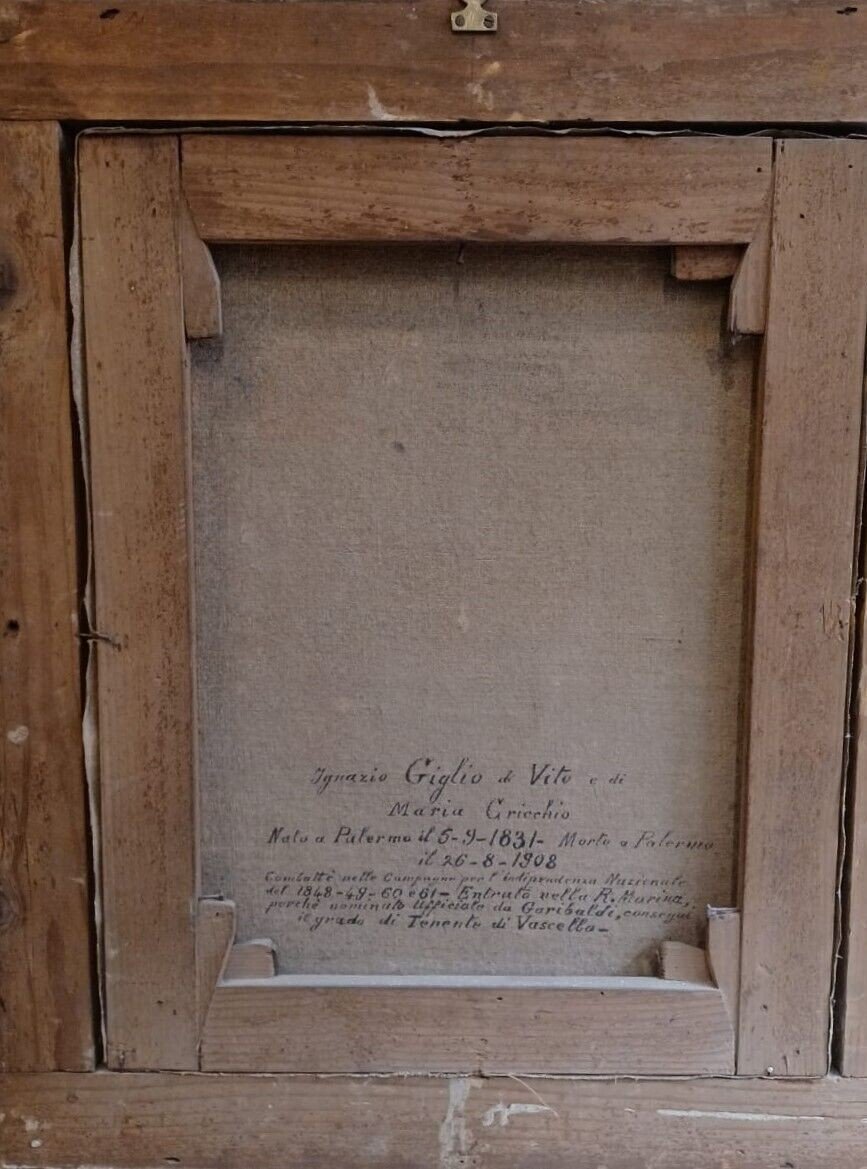 Ignazio Giglio di Vito e di
Maria Gricchio
Nato a Palermo il 5-9-1831- Morto a Palermo
il 26-8-1908
Combattè nelle Campagne per l'indipendenza Nazionale
del 1848-49-60 e 61- Entrato nella R. Marina,
perchè nominato Ufficiale da Garibaldi, conseguì
il grado di Tenente di Vascello-